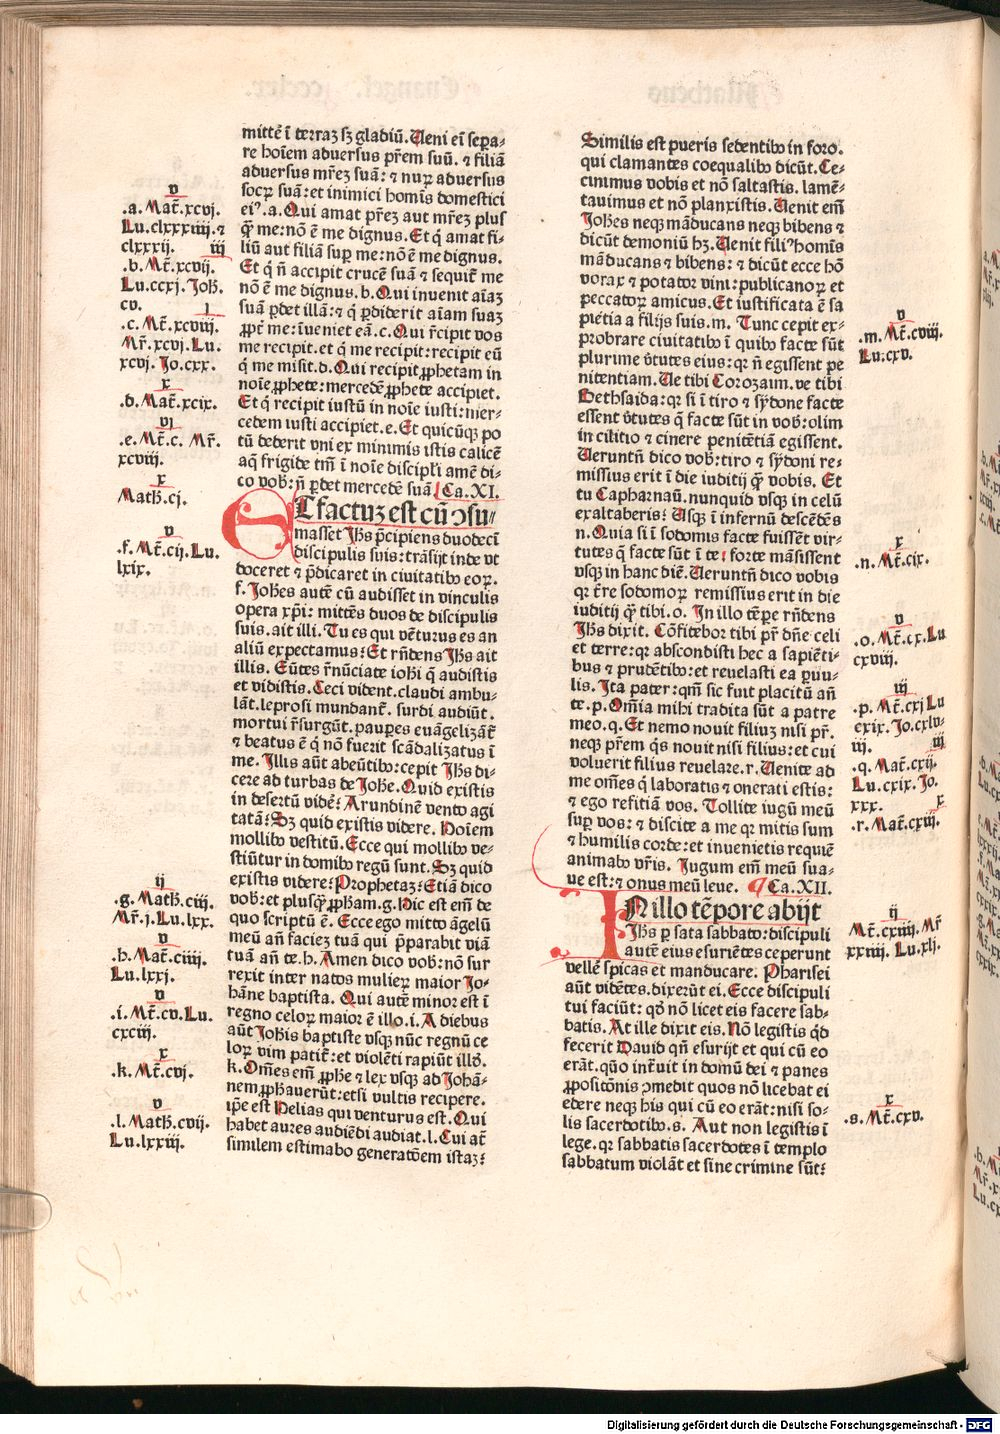 mittē ī terraꝫ sꝫ gladiū. Ueni ei᷒ sepa-
re hoīem aduersus pr̄em suū. ⁊ filiā
aduersus mr̄eꝫ suā: ⁊ nuꝝ aduersus
socꝝ suā: et inimici homīs domestici
eiꝰ. a. Qui amat pr̄eꝫ aut mr̄eꝫ plus
q̄ me: nō ē me dignus. Et q̇ amat fi-
liū aut filiā suꝑ me: nō ē me dignus.
Et q̇ n̄ accipit crucē suā ⁊ sequit̄ me
nō ē me dignus. b. Qui inuenit aīaꝫ
suā ꝑdet illā: ⁊ q̇ ꝑdiderit aīam suaꝫ
ꝓpt̄ me: īueniet eā. c. Qui r̄cipit vos
me recipit. et q̇ me recipit: recipit eū
q̇ me misit. d. Qui recipit ꝓphetam in
noīe ꝓphete: mercedē ꝓphete accipiet.
Et q̇ recipit iustū in noīe iusti: mer-
cedem iusti accipiet. e. Et quicūqꝫ po
tū dederit vni ex minimis istis calicē
aq̄ frigide tm̄ ī noīe discipl'i amē di-
co vob̄: n̄ ꝑdet mercedē suā. Ca. XI.
Et factuꝫ est cū ꝯsu-
masset Jh̄s p̄cipiens duodecī
discipulis suis: trāsijt inde vt
doceret ⁊ p̄dicaret in ciuitatibꝰ eoꝝ.
f. Joh̄es autē cū audisset in vinculis
opera xp̄i: mittēs duos de discipulis
suis. ait illi. Tu es qui vēturus es an
aliū expectamus? Et rn̄dens Jh̄s ait
illis. Eūtes r̄nūciate ioh̄i q̄ audistis
et vidistis. Ceci vident. claudi ambu-
lāt. leprosi mundant̄. surdi audiūt.
mortui r̄surgūt. paupes euāgelizāt̄
⁊ beatus ē q̇ nō fuerit scādalizatus ī
me. Illis aūt abeūtibꝰ: cepit Jh̄s di-
cere ad turbas de Joh̄e. Quid existis
in desertū vidē? Arundinē vento agi
tatā? Sꝫ quid existis videre. Hoīem
mollibꝰ vestitū. Ecce qui mollibꝰ ve-
stiūtur in domibꝰ regū sunt. Sꝫ quid
existis videre? Prophetaꝫ? Etiā dico
vob̄: et plusq̄ ꝓph̄am. g. Hic est em̄ de
quo scriptū ē. Ecce ego mitto āgelū
meū an̄ facieꝫ tuā qui p̄parabit viā
tuā an̄ te. h. Amen dico vob̄: nō sur
rexit inter natos mulieꝝ maior Jo-
hāne baptista. Qui autē minor est ī
regno celoꝝ maior ē illo. i. A diebus
aūt Joh̄is baptiste vsqꝫ nūc regnū ce
loꝝ vim patit̄: et violēti rapiūt illō.
k. Om̄es em̄ ꝓph̄e ⁊ lex vsqꝫ ad Johā-
nem ꝓph̄auerūt: et si vultis recipere.
ip̄e est Helias qui venturus est. Qui
habet aures audiēdi audiat. l. Cui at̄
similem estimabo generatōem istaꝫ?
v
.a. Mat̄. xcvj.
Lu. clxxxiiij. ⁊
clxxxij. iij
.b. Mt̄. xcvij.
Lu. ccxj. Joh̄.
cv. j
.c. Mt̄. xcviij.
Mr̄. xcvj. Lu.
xcvj. Jo. cxx.
x
.d. Mat̄. xcix.
vj
.e. Mt̄. c. Mr̄.
xcviij.
x
Math̄. cj.
v
.f. Mt̄. cij. Lu.
lxix.
ij
.g. Math̄. ciij.
Mr̄. j. Lu. lxx.
v
.h. Mat̄. ciiij.
Lu. lxxj.
v
.i. Mt̄. cv. Lu.
cxciij.
x
.k. Mt̄. cvj.
v
.l. Math̄. cvij.
Lu. lxxiij.
Similis est pueris sedentibꝰ in foro.
qui clamantes coequalibꝰ dicūt. Ce-
cinimus vobis et nō saltastis. lamē-
tauimus et nō planxistis. Uenit em̄
Joh̄es neqꝫ māducans neqꝫ bibens ⁊
dicūt demoniū hꝫ. Uenit filiꝰ homīs
māducans ⁊ bibens: ⁊ dicūt ecce hō
vorax ⁊ potator vini: publicanoꝝ et
peccatoꝝ amicus. Et iustificata ē sa
piētia a filijs suis. m. Tunc cepit ex-
probrare ciuitatibꝰ ī quibꝰ facte sūt
plurime v̄tutes eius: qꝛ n̄ egissent pe
nitentiam. Ue tibi Corozaim. ve tibi
Bethsaida: qꝛ si ī tiro ⁊ sydone facte
essent v̄tutes q̄ facte sūt in vob̄: olim
in cilitio ⁊ cinere penitētiā egissent.
Ueruntn̄ dico vob̄: tiro ⁊ sydoni re-
missius erit ī die iuditij q̄ vobis. Et
tu Capharnaū. nunquid vsqꝫ in celū
exaltaberis? Usqꝫ ī infernū descēdēs
n. Quia si ī sodomis facte fuissēt vir-
tutes q̄ facte sūt ī te: forte māsissent
vsqꝫ in hanc diē. Ueruntn̄ dico vobis
qꝛ t̄re sodomoꝝ remissius erit in die
iuditij q̄ tibi. o. In illo tēꝑe rn̄dens
Jh̄s dixit. Cōfitebor tibi pr̄ dn̄e celi
et terre: qꝛ abscondisti hec a sapiēti-
bus ⁊ prudētibꝰ: et reuelasti ea ꝑuu-
lis. Ita pater: qm̄ sic fuit placitū an̄
te. p. Om̄ia mihi tradita sūt a patre
meo. q. Et nemo nouit filiuꝫ nisi pr̄.
neqꝫ pr̄em q̇s nouit nisi filius: et cui
voluerit filius reuelare. r. Uenite ad
me om̄es q̇ laboratis ⁊ onerati estis:
⁊ ego refitiā vos. Tollite iugū meū
suꝑ vos: ⁊ discite a me qꝛ mitis sum
⁊ humilis corde: et inuenietis requiē
animabꝰ vr̄is. Jugum em̄ meū sua-
ue est: ⁊ onus meū leue. Ca. XII.
IN illo tēpore abijt
Jh̄s ꝑ sata sabbato: discipuli
autē eius esuriētes ceperunt
vellē spicas et manducare. Pharisei
aūt vidētes. dixerūt ei. Ecce discipuli
tui faciūt: qd̄ nō licet eis facere sab-
batis. At ille dixit eis. Nō legistis qd̄
fecerit Dauid qn̄ esurijt et qui cū eo
erāt. quō int̄uit in domū dei ⁊ panes
ꝓpositōnis ꝯmedit quos nō licebat ei
edere neqꝫ his qui cū eo erāt: nisi so-
lis sacerdotibꝰ. s. Aut non legistis ī
lege. qꝛ sabbatis sacerdotes ī templo
sabbatum violāt et sine crimine sūt?
v
.m. Mt̄. cviij.
Lu. cxv.
x
.n. Mt̄. cix.
v
.o. Mt̄. cx. Lu
cxviij.
iij
.p. Mt̄. cxj Lu
cxix. Jo. cxlv-
iij. iij
.q. Mat̄. cxij.
Lu. cxix. Jo.
xxx. x
.r. Mat̄. cxiij.
ij
Mt̄. cxiiij. Mr̄
xxiiij. Lu. xlj.
x
.s. Mt̄. cxv.
Digitalisierung gefördert durch die Deutsche Forschungsgemeinschaft - DFG